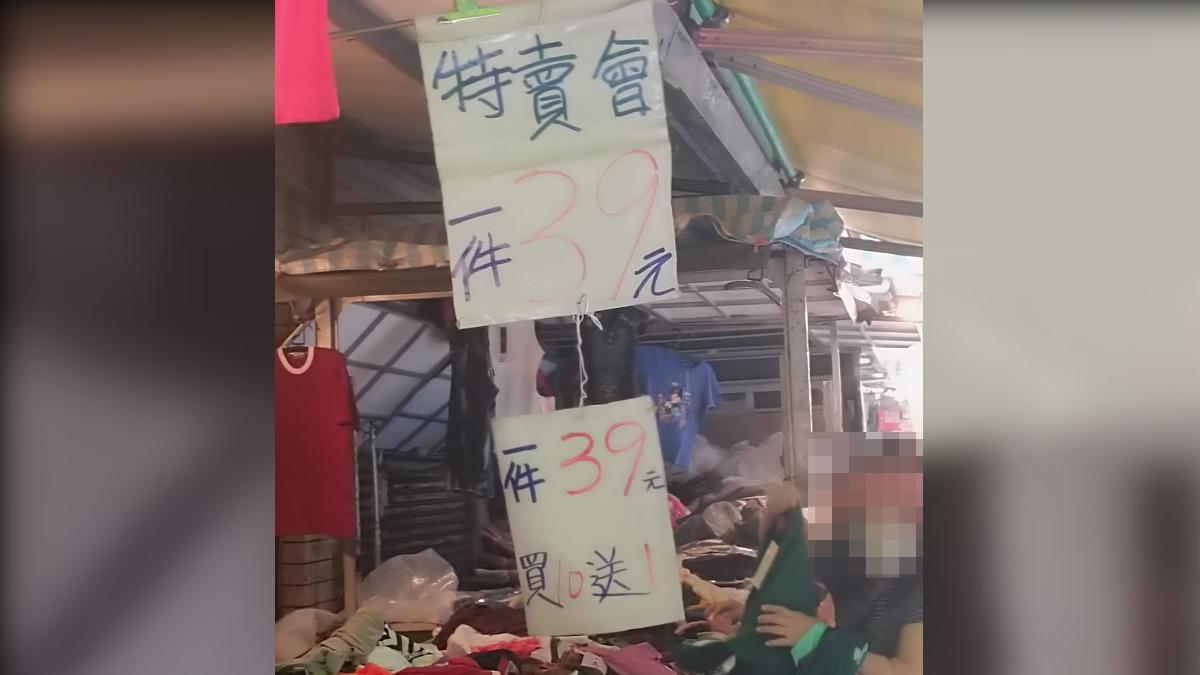 特賣會
一件39元
一件39元
買10送1